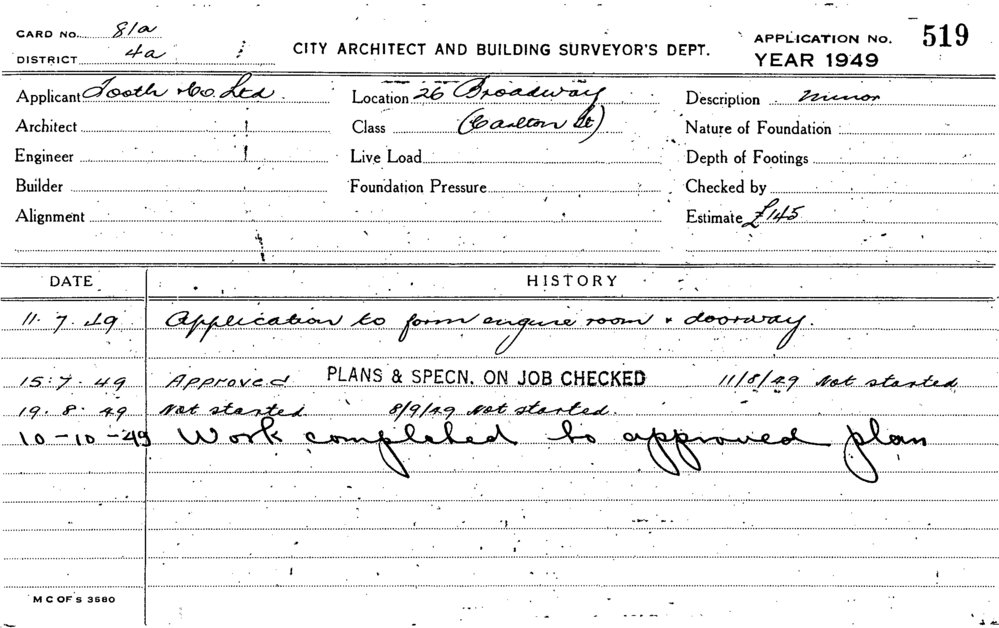 CARD No. 81a
DISTRICT 4a
CITY ARCHITECT AND BUILDING SURVEYOR'S DEPT.
APPLICATION No. 519
YEAR 1949
Applicant Tooth & Co. Ltd. Location 26 Broadway Description minor
Architect Class (Carlton St) Nature of Foundation
Engineer Live Load Depth of Footings
Builder Foundation Pressure Checked by
Alignment Estimate £145
DATE HISTORY
11. 7. 49 Application to form engine room & doorway.
15. 7. 49 Approved PLANS & SPECN. ON JOB CHECKED 11/8/49 Not started
19. 8. 49 Not started 8/9/49 Not started.
10-10-49 Work completed to approved plan
M C OF S 3580